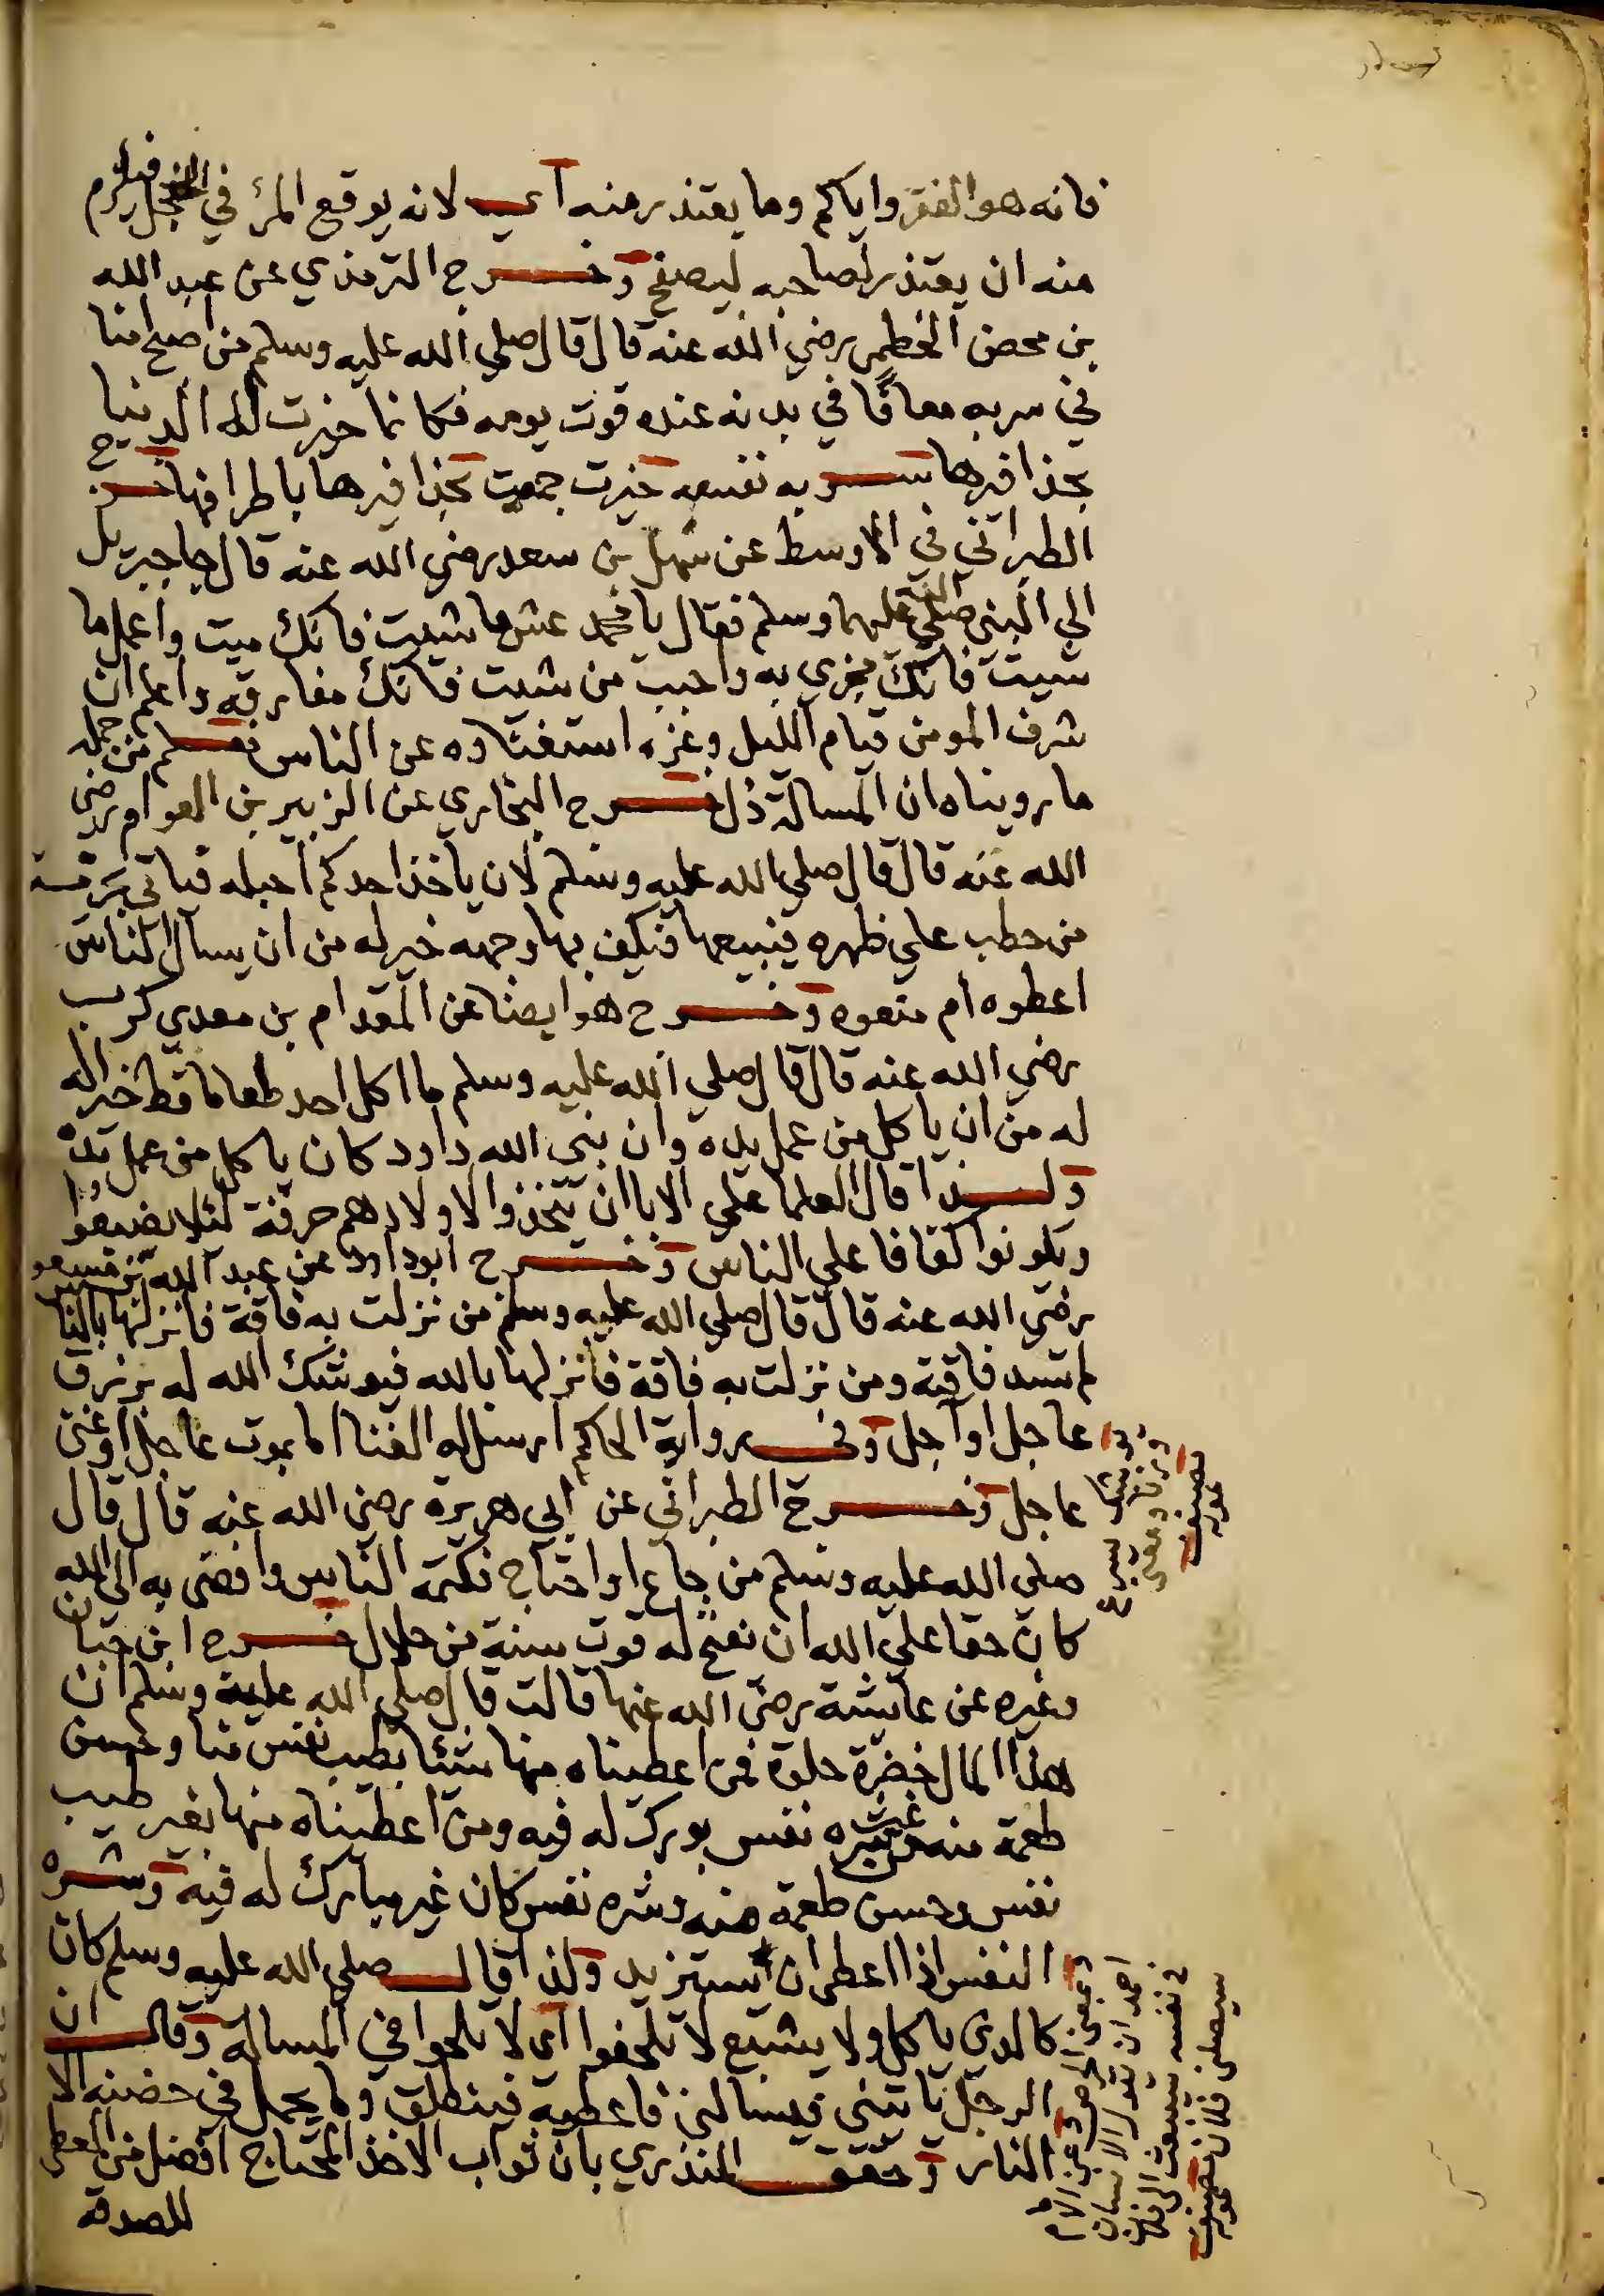 فانه هو الفقر واياكم وما يعتذر منه اي لانه يوقع المرء في الخجل فيلزم
منه ان يعتذر لصاحبه ليصفح وخرج الترمذي عن عبد الله
بن محصن الخطمي رضي الله عنه قال قال صلي الله عليه وسلم من اصبح امنا
في سربه معافا في بدنه عنده قوت يومه فكانما حيزت له الدنيا
بحذافيرها سربه نفسه حيزت جمعت بحذافيرها باطرافها خرج
الطبراني في الاوسط عن سهل بن سعد رضي الله عنه قال جا جبريل
الي النبي صلي الله عليهما وسلم فقال يا محمد عش ما شيت فانك ميت واعمل ما
شيت فانك مجزي به واحبب من شيت فانك مفارقه واعلم ان
شرف المومن قيام الليل وعزه استغناوه عن الناس فعلم من جملة
ما رويناه ان المسالة ذل خرج البخاري عن الزبير بن العوام رضي
الله عنه قال قال صلي الله عليه وسلم لان ياخذ احدكم احبله فياتي بحزمة
من حطب علي ظهره فيبيعها فيكف بها وجهه خير له من ان يسال الناس
اعطوه ام منعوه وخرج هو ايضا عن المقدام بن معدي كرب
رضي الله عنه قال قال صلي الله عليه وسلم ما اكل احد طعاما قط خيرا له
له من ان ياكل من عمل يده وان نبي الله داود كان ياكل من عمل يده
ولذا قال العلما علي الابا ان يتخذوا لاولادهم حرفة لئلا يضيعوا
ويكونوا كفافا علي الناس وخرج ابوداود عن عبد الله بن مسعود
رضي الله عنه قال قال صلي الله عليه وسلم من نزلت به فاقة فانزلها بالناس
لم تسد فاقته ومن نزلت به فاقة فانزلها بالله فيوشك الله له برزق
عاجل او آجل وفي رواية الحاكم ارسل له الغنا اما بموت عاجل او غني
عاجل وخرج الطبراني عن ابي هريرة رضي الله عنه قال قال
صلي الله عليه وسلم من جاع او احتاج فكتمه الناس وافضي به الي الله
كان حقا علي الله ان يفتح له قوت سنة من حلال خرج ابن حبان
وغيره عن عايشة رضي الله عنها قالت قال صلي الله عليه وسلم ان
هذا المال خضرة حلوة فمن اعطيناه منها شيئا بطيب نفس منا وحسن
طعمة منه من غير شره نفس بورك له فيه ومن اعطيناه منها بغير طيب
نفس وحسن طعمة منه وشره نفس كان غير مبارك له فيه وشره
النفس اذا اعطي ان يستزيد ولذا قال صلي الله عليه وسلم كان
كالذي ياكل ولا يشبع لا تلحفوا اي لا تلحوا في المسالة وقال ان
الرجل ياتيني فيسالني فاعطيه فينطلق وما يحمل في حضنه الا
النار وحقق المنذري بان ثواب الاخذ المحتاج افضل من المعطي
للصدقة